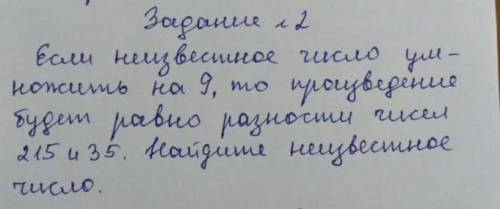 Задание №2
Если неизвестное число ум-
ножить на 9, то произведение
будет равно разности чисел
215 и 35. Найдите неизвестное
число.